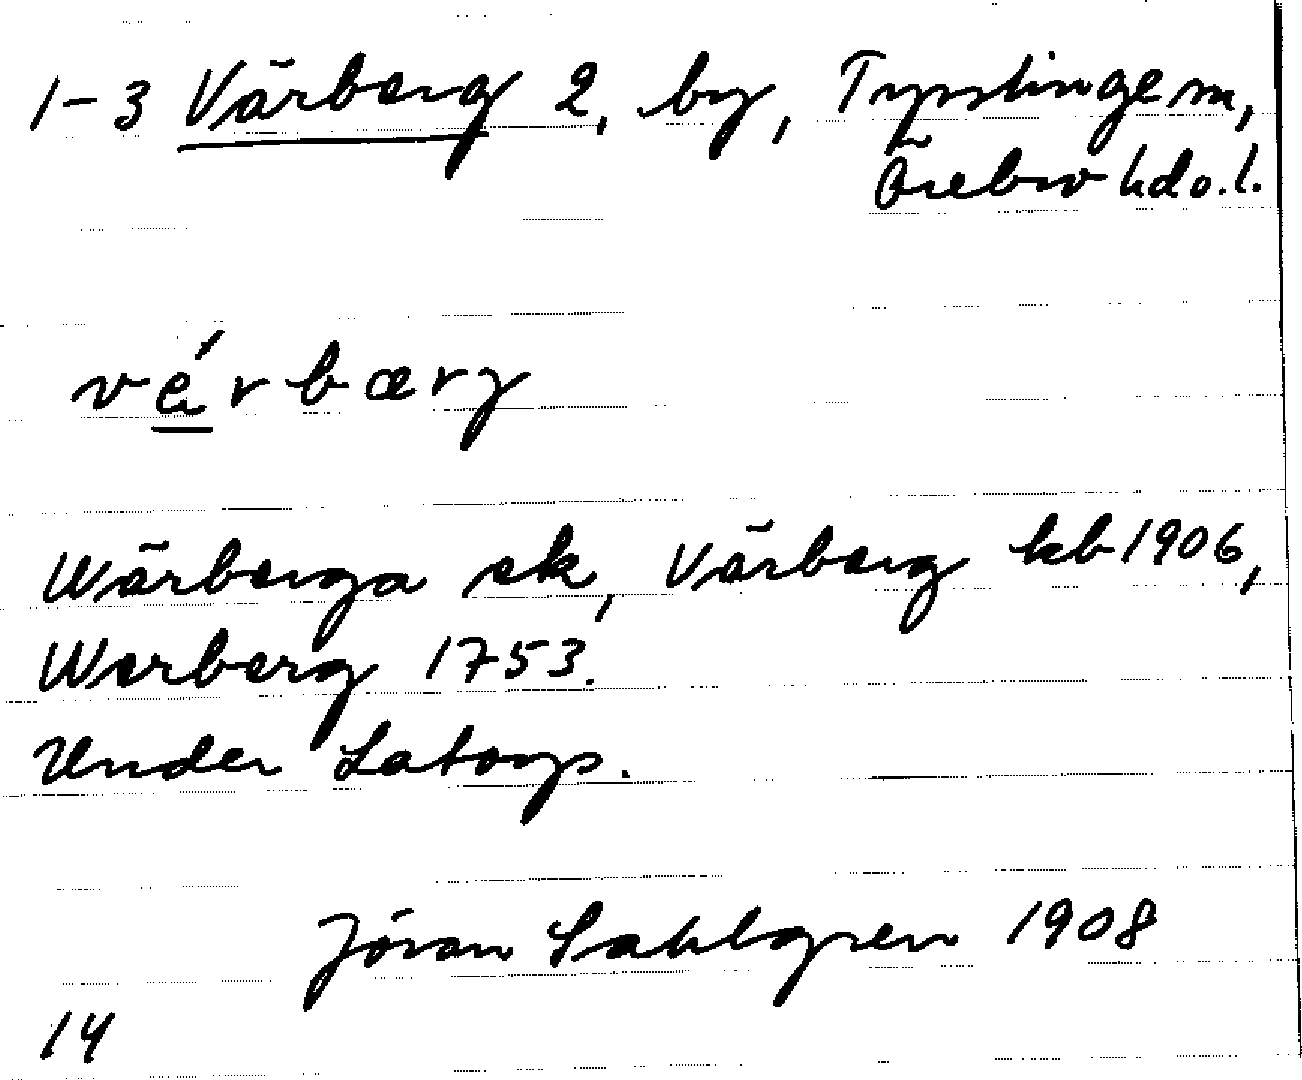 1-3 Värberg 2, by, Tysslinge sn,
Örebro hd o. l.
vérbærg
Wärberga ek, Värberg kb 1906,
Werberg 1753.
Under Latorp.
Jöran Sahlgren 1908
14